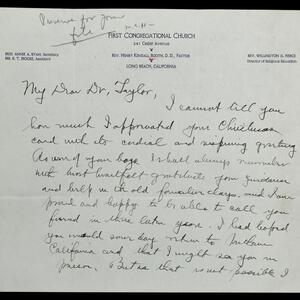 Preserve for your
file
FIRST CONGREGATIONAL CHURCH
241 CEDAR AVENUE
MISS ANNIE A. RYAN, Assistant
MR. R. T. MOORE, Assistant
REV. HENRY KENDALL BOOTH, D. D., PASTOR
REV. WELLINGTON G. PIERCE
Director of Religious Education
LONG BEACH, CALIFORNIA
My Dear Dr. Taylor,
I cannot tell you
how much I appreciated your Christmas
card with its cordial and inspiring greeting
As one of your boys I shall always remember
with most heartfelt gratitude your guidance
and help in the old formative days, and I am
proud and happy to be able to call you
friend in these later years. I had hoped
you would some day return to Southern
California and that I might see you in
person. But as that is not possible I